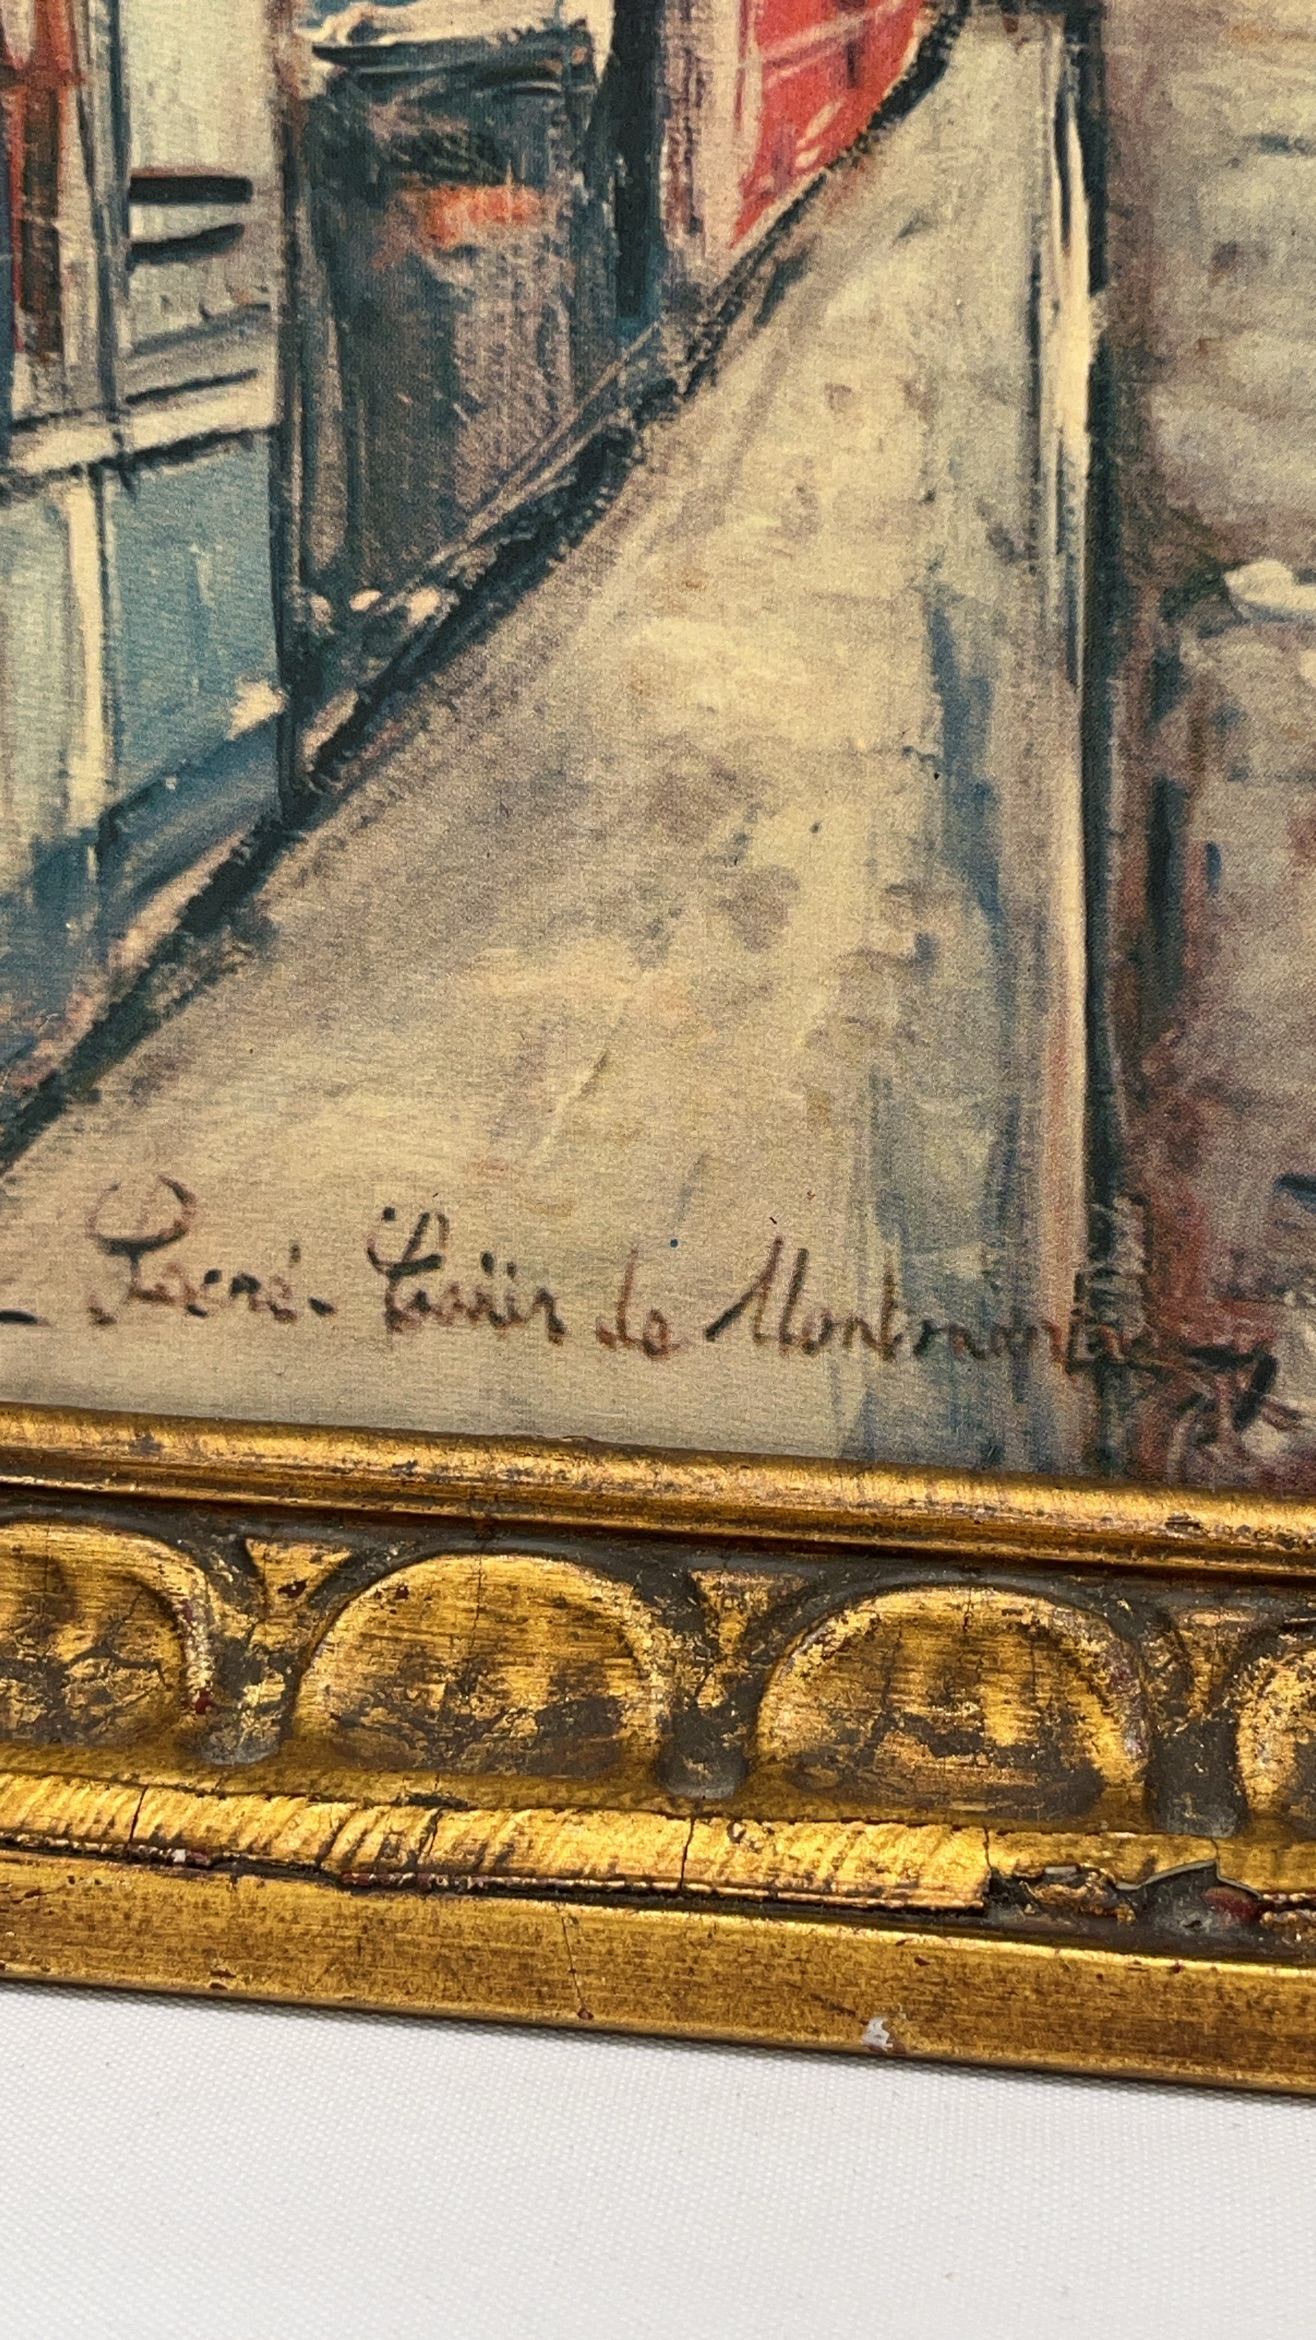 Sacré-Cœur de Montmartre